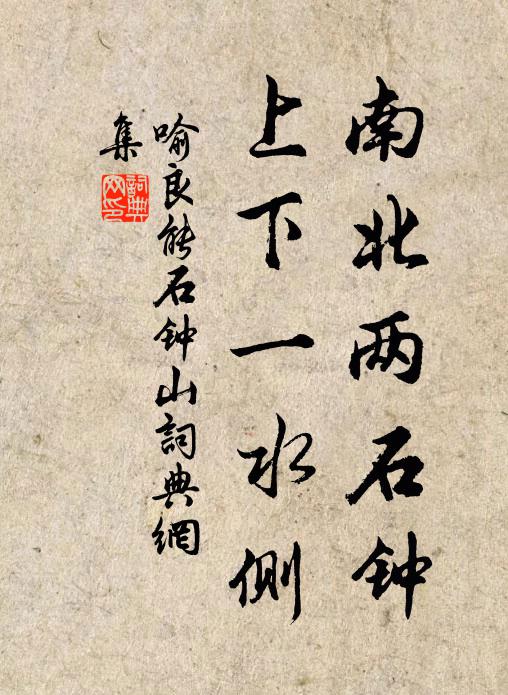 南北两石钟
上下一水侧
喻良能石钟山詞典網
集
詞典
网印